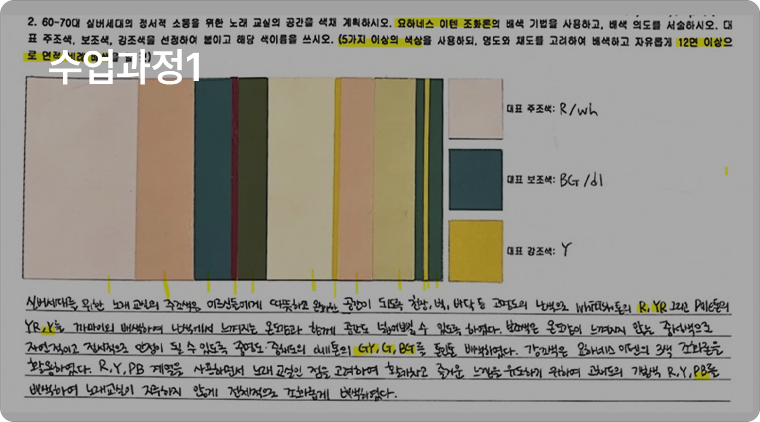 2. 60-70대 실버세대의 정서적 소통을 위한 노래 교실의 공간을 색채 계획하시오. 요하네스 이텐 조화론의 배색 기법을 사용하고, 배색 의도를 서술하시오. 대
표 주조색, 보조색, 강조색을 선정하여 붙이고 해당 색이름을 쓰시오. (5가지 이상의 색상을 사용하되, 명도와 채도를 고려하여 배색하고 자유롭게 12면 이상으
로 면적
수업과정1
대표 주조색: R/wh
대표 보조색: BG/dl
대표 강조색: Y
실버세대를 위한 노래교실의 주조색은 어르신들에게 따뜻하고 편안한 공간이 되도록 천장, 벽, 바닥 등 고명도의 난색으로 whitish톤의 R, YR 그리고 Pale톤의
YR, Y를 배색하여 난색에서 느껴지는 온도감과 함께 공간도 넓어보일 수 있도록 하였다. 보조색은 온도감이 느껴지지 않는 중성색으로
자연적이고 전체적으로 안정이 될 수 있도록 중명도 중채도의 dull톤의 GY, G, BG를 톤인톤 배색하였다. 강조색은 요하네스 이텐의 3색 조화론을
활용하였다. R, Y, PB 계열을 사용하면서 노래교실인 점을 고려하여 활기차고 즐거운 느낌을 유도하기 위하여 고채도의 R, Y, PB를
배색하여 노래교실이 지루하지 않게 전체적으로 조화롭게 배색하였다.